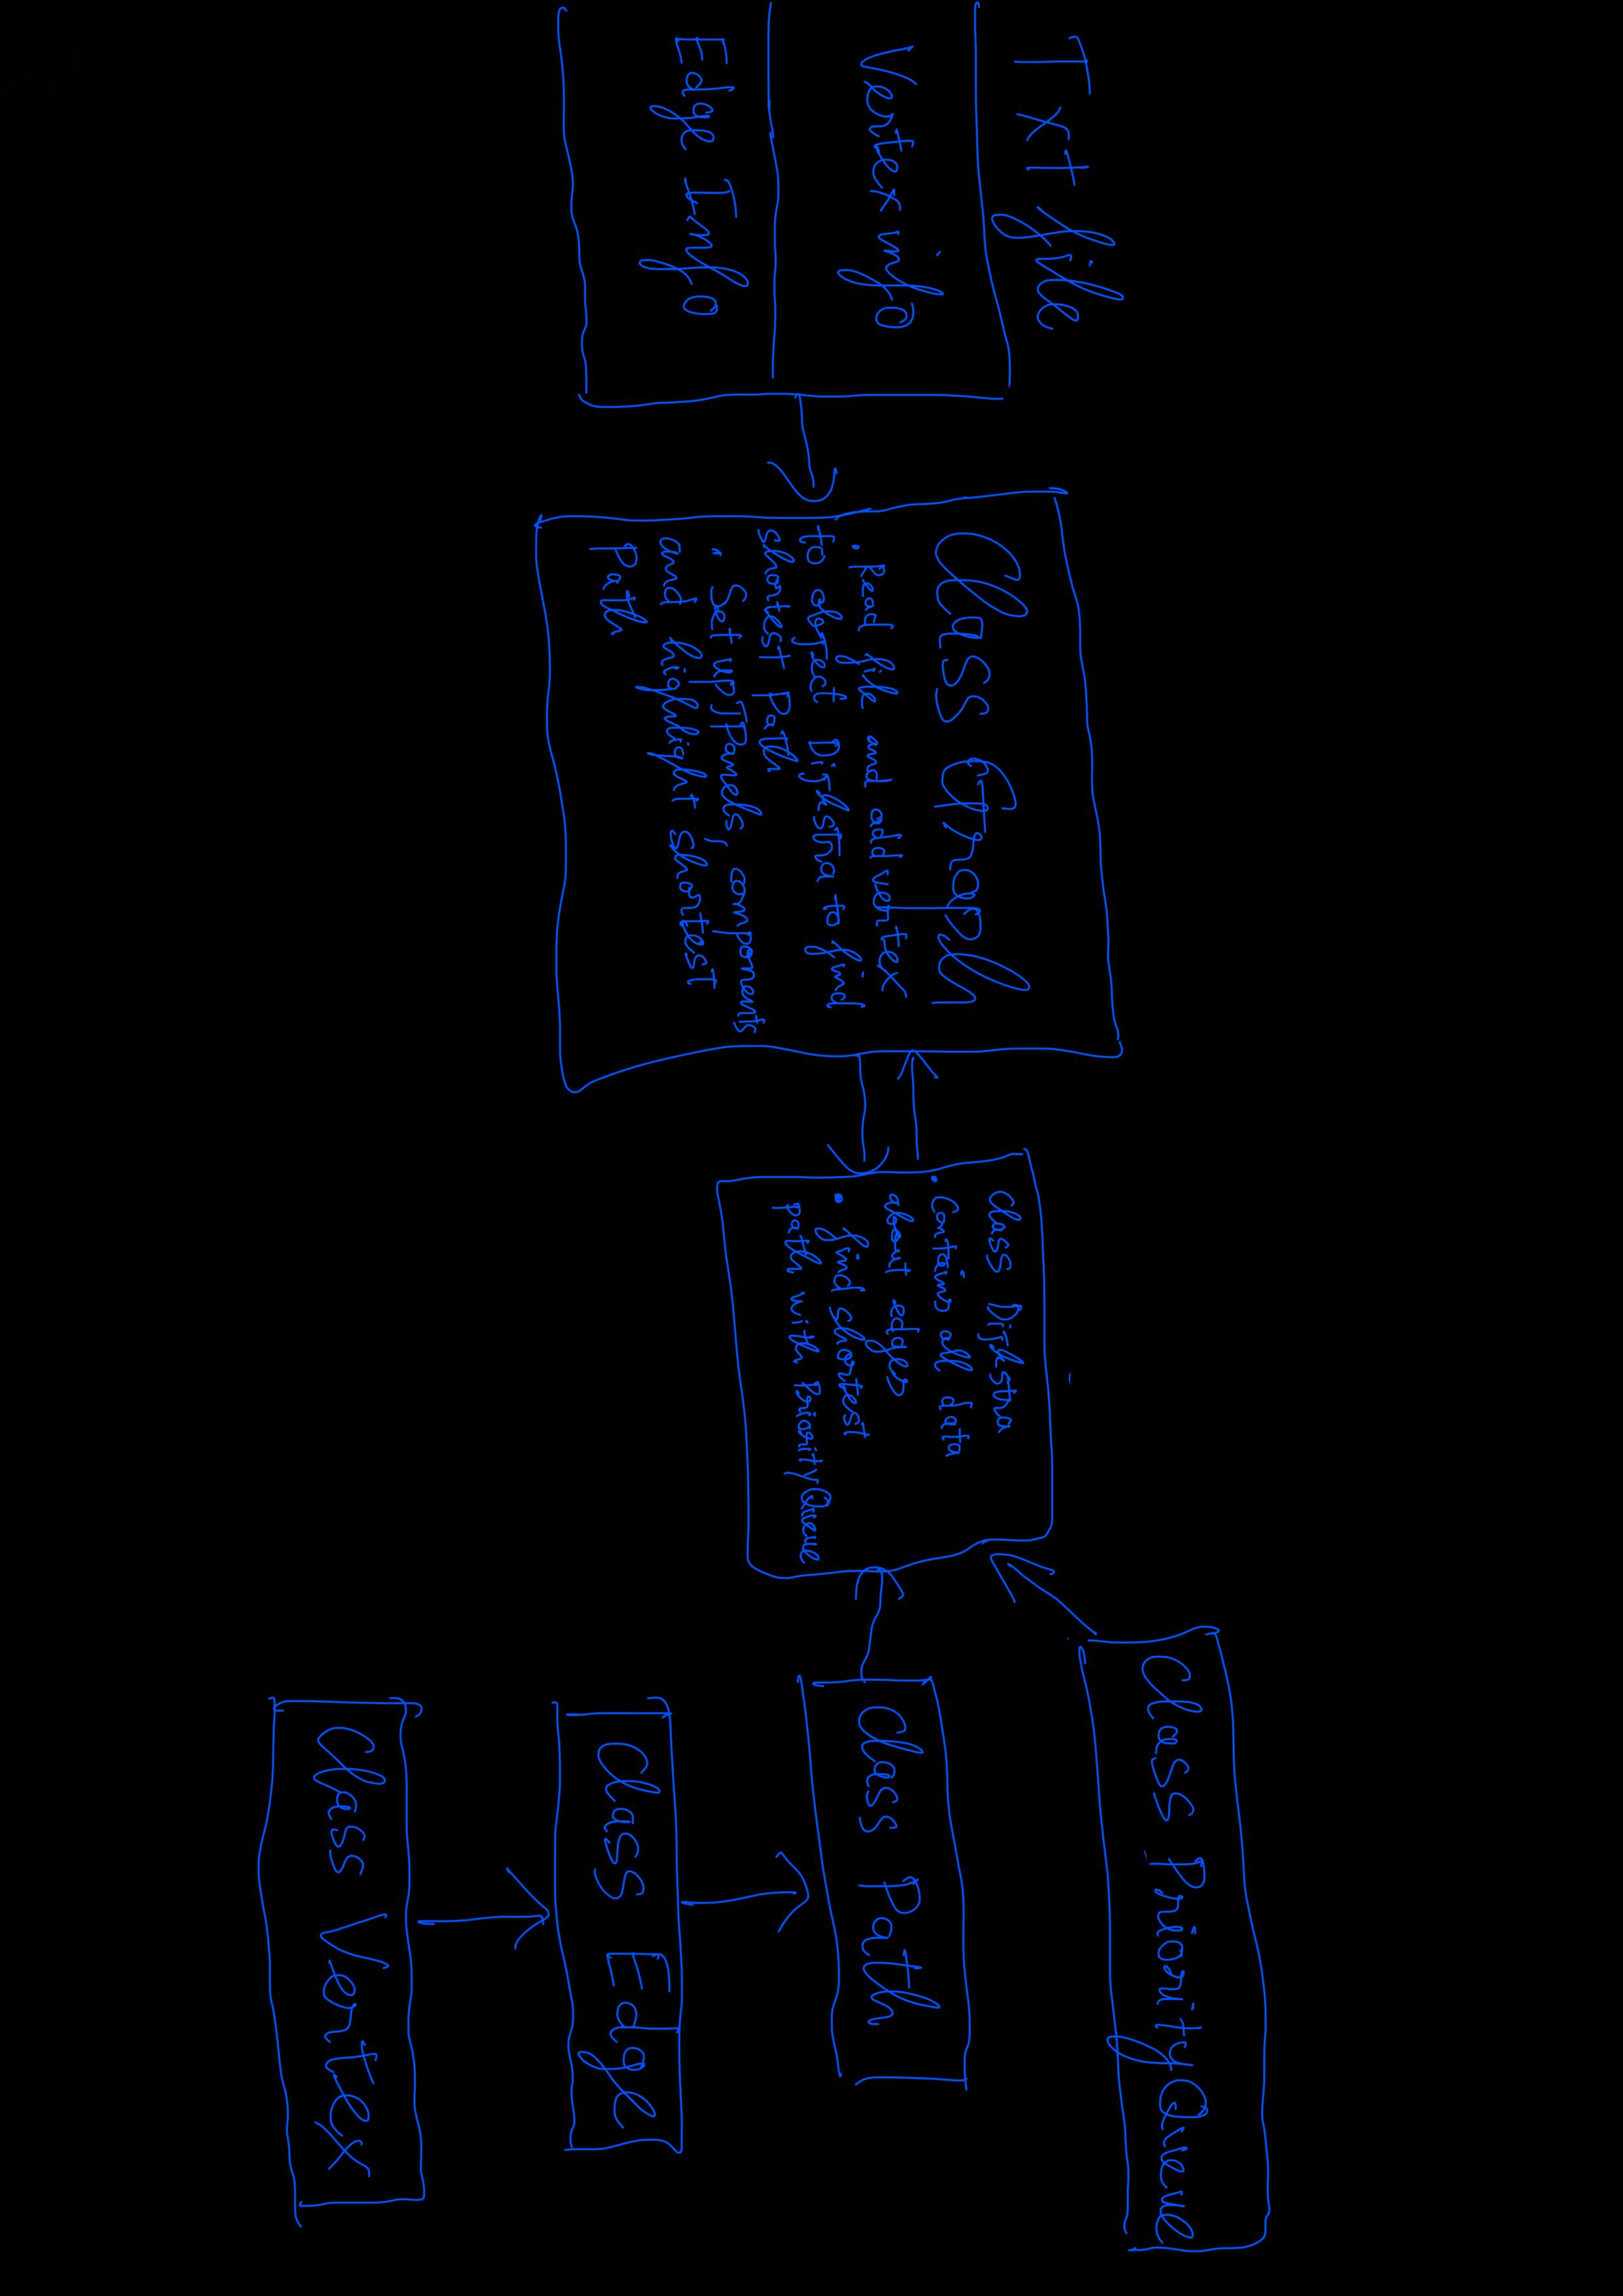 Txt file
Vertex info
Edge Info
Class Graph
• Read file and add vertex
to object Dijkstra to find
shortest Path
• Set up JPanels, components
and highlight shortest
Path
Class Dijkstra
• Contains all data
about edges
• find shortest
path with PriorityQueue
Class PriorityQueue
Class Path
Class Edge
Class Vertex